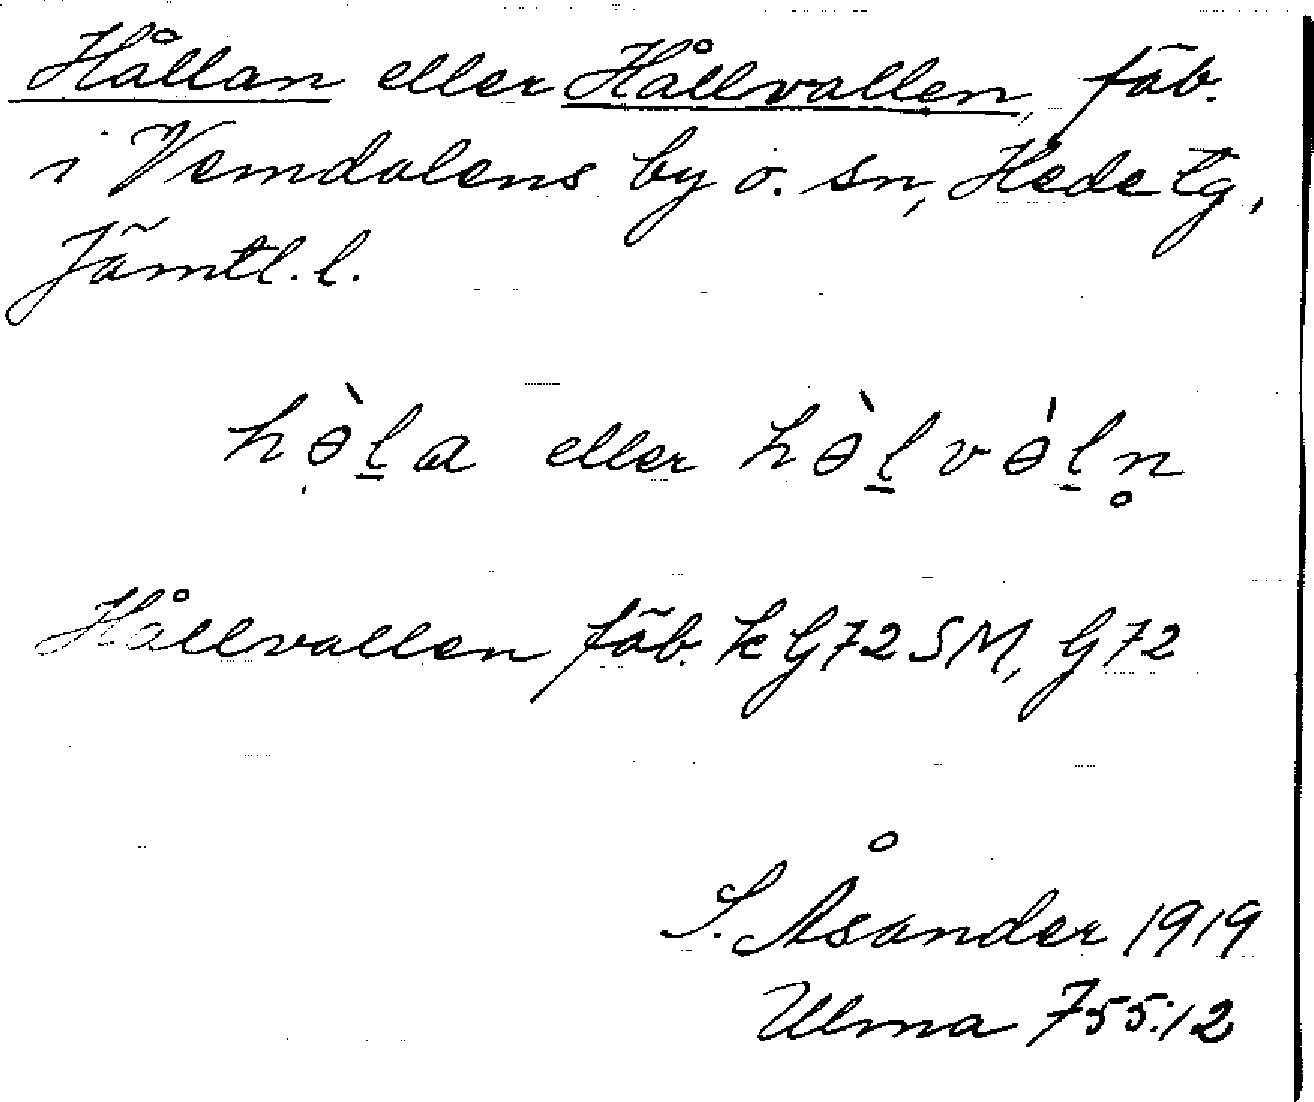 Hållan eller Hållvallen, fäb.
i Vemdalens by o. sn, Hede tg,
Jämtl. l.
hə̣̀l̠a eller hə̀l̠və́l̠n̥
Hållvallen fäb. k G72SM, G72
S. Åsander 1919
Ulma 755:12